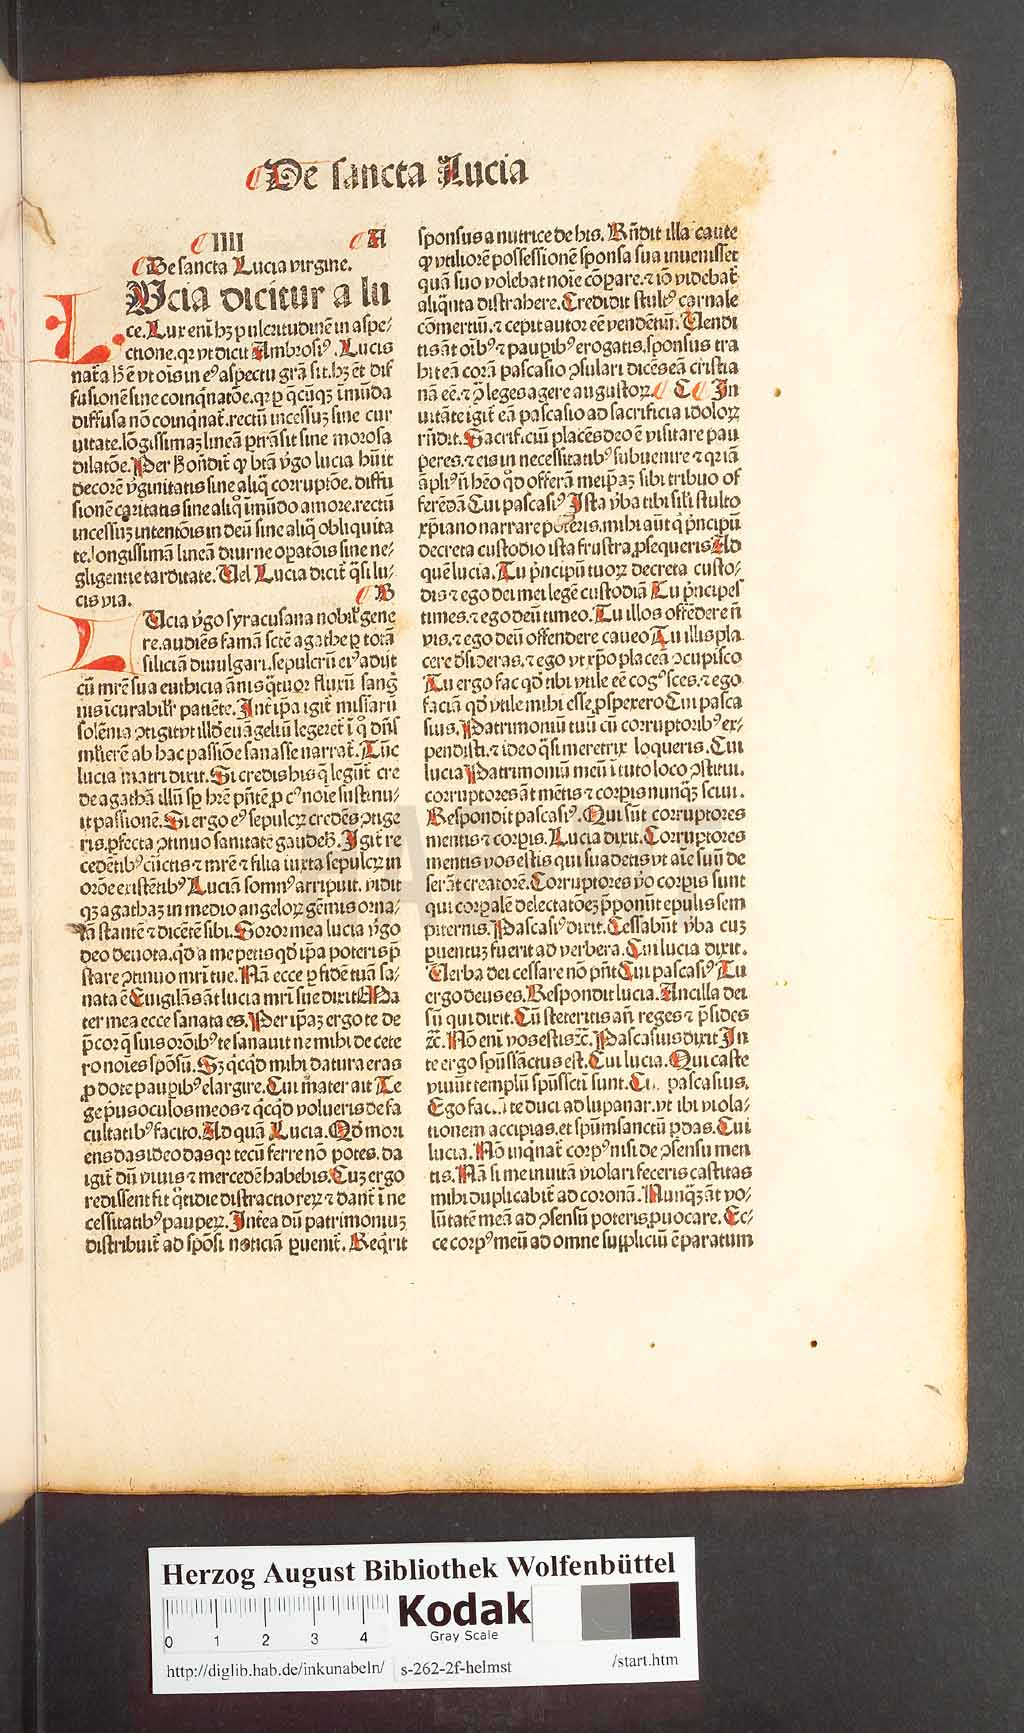 De sancta Lucia
IIII A
De sancta Lucia virgine.
LUcia dicitur a lu
ce. Lux eni hꝫ pulcritudinē in aspe-
ctione. qꝛ vt dicit Ambrosiꝰ. Lucis
nat̄a h̄ ē vt oīs in eꝰ aspectu grā sit. hꝫ et̄ dif
fusionē sine coinq̄natōe. qꝛ ꝑ q̄cūqꝫ īmūda
diffusa nō coinq̄nat̄. rectū incessuꝫ sine cur
uitate. lōgissimaꝫ lineā ꝑtrāsit sine morosa
dilatōe. Per h̄ ondit̄ ꝙ btā v̄go lucia hūit
decorē v̄ginitatis sine aliq̄ corruptōe. diffu
sionē caritatis sine aliq̊ īmūdo amore. rectū
incessuꝫ intentōis in deū sine aliq̄ obliquita
te. longissimā lineā diurne oꝑatōis sine ne-
gligentie tarditate. Uel Lucia dicit̄ q̄si lu-
cis via. B
LUcia v̄go syracusana nobil̓ gene
re. audiēs famā sctē agathe ꝑ totā
siliciā diuulgari. sepulcrū eiꝰ adijt
cū mr̄e sua euthicia ānis q̄tuor fluxū sanḡ
nis īcurabil̓r patiēte. Int̓ ip̄a igit̄ missarū
solēnia ↄtigit vt illd̓ euāgeliū legeret̄ ī q̊ dn̄s
mulierē ab hac passiōe sanasse narrat̄. Tūc
lucia matri dixit. Si credis his q̄ legūt̄ cre
de agathā illū sp̄ hr̄e pn̄tē ꝓ cꝰ noīe sustinu-
it passionē. Si ergo eꝰ sepulcꝝ credēs ↄtige
ris. ꝑfecta ↄtinuo sanitate gaudeb̓. Igit̄ re
cedētibꝰ cūctis ⁊ mr̄e ⁊ filia iuxta sepulcꝝ in
orōe existētibꝰ Luciā somnꝰ arripuit. vidit
qꝫ agathaꝫ in medio angeloꝝ gēmis orna-
tā stantē ⁊ dicētē sibi. Soror mea lucia v̄go
deo deuota. qd̓ a me petis qd̓ ip̄a poteris p̄
stare ↄtinuo mr̄i tue. Nā ecce ꝑ fidē tuā sa-
nata ē Euigilās āt lucia mr̄i sue dixit Ma
ter mea ecce sanata es. Per ip̄aꝫ ergo te de
p̄cor q̄ suis orōibꝰ te sanauit ne mihi de cete
ro noīes spōsū. Sꝫ q̄cqd̓ mihi datura eras
ꝓ dote pauꝑibꝰ elargire. Cui mater ait Te
ge p̓us oculos meos ⁊ q̄cqd̓ volueris de fa
cultatibꝰ facito. Ad quā Lucia. Qd̓ mori
ens das ideo das qꝛ tecū ferre nō potes. da
igit̄ dū viuis ⁊ mercedē habebis. Cuꝫ ergo
redissent fit q̊tidie distractio reꝝ ⁊ dant̄ ī ne
cessitatibꝰ pauꝑeꝝ. Intea dū patrimoniuꝫ
distribuit̄ ad spōsi noticiā ꝑuenit̄. Req̄rit
sponsus a nutrice de his. Rn̄dit illa caute
ꝙ vtiliorē possessionē sponsa sua inuenisset
quā suo volebat noīe cōꝑare. ⁊ iō videbat̄
aliq̄nta distrahere. Credidit stultꝰ carnale
cōmertiū. ⁊ cepit autor eē vendētiū. Uendi
tis āt oībꝰ ⁊ pauꝑibꝰ erogatis. sponsus tra
hit eā corā pascasio ↄsulari dicēs eā cristia
nā eē. ⁊ ↄ leges agere augustoꝝ. C In
uitāte igit̄ eā pascasio ad sacrificia idoloꝝ
rn̄dit. Sacrificiū placēs deo ē visitare pau
ꝑeres. ⁊ eis in necessitatibꝰ subuenire ⁊ qꝛ iā
āpliꝰ n̄ hēo qd̓ offerā meip̄aꝫ sibi tribuo of
ferēdā Cui pascasiꝰ Ista v̄ba tibi sil̓i stulto
xp̄iano narrare poteris. mihi aūt q̄ pn̄cipū
decreta custodio ista frustra ꝓsequeris Ad
quē lucia. Tu pn̄cipū tuoꝝ decreta custo-
dis ⁊ ego dei mei legē custodiā Tu pn̄cipes
times. ⁊ ego deū timeo. Tu illos offēdere n̄
vis. ⁊ ego deū offendere caueo Tu illis pla
cere desideras. ⁊ ego vt xp̄o placeā ↄcupisco
Tu ergo fac qd̓ tibi vtile eē cogꝰsces. ⁊ ego
faciā qd̓ vtile mihi esse ꝓspexero Cui pasca
sius. Patrimoniū tuū cū corruptoribꝰ ex-
pendisti. ⁊ ideo q̄si meretrix loqueris. Cui
lucia Patrimoniū meū ī tuto loco ↄstitui.
corruptores āt mētis ⁊ corꝑis nunqꝫ sciui.
Respondit pascasiꝰ. Qui sūt corruptores
mentis ⁊ corꝑis. Lucia dixit. Corruptores
mentis vos estis qui suadetis vt aīe suū de
serāt creatorē. Corruptores v̓o corꝑis sunt
qui corꝑalē delectatōeꝫ p̄ponūt epulis sem
piternis. Pascasiꝰ dixit. Cessabūt v̄ba cuꝫ
ꝑuentuꝫ fuerit ad verbera. Cui lucia dixit.
Uerba dei cessare nō pn̄t Cui pascasiꝰ Tu
ergo deus es. Respondit lucia. Ancilla dei
sū qui dixit. Cū steteritis an̄ reges ⁊ p̄sides
⁊c̄. Nō eni vos estis ⁊c̄. Pascasius dixit In
te ergo spūssāctus est. Cui lucia. Qui caste
viuūt templū spūsscti sunt. pascasius.
Ego te duci ad lupanar. vt ibi viola-
tionem accipias. et spūmsanctū ꝑdas. Cui
lucia. Nō inq̄nat̄ corpꝰ nisi de ↄsensu men
tis. Nā si me inuitā violari feceris castitas
mihi duplicabit̄ ad coronā. Nunqꝫ āt vo-
lūtatē meā ad ↄsensū poteris ꝓuocare. Ec-
ce corpꝰ meū ad omne suppliciū ē paratum
Herzog August Bibliothek Wolfenbüttel
0 1 2 3 4
Kodak
Gray Scale
http://diglib.hab.de/inkunabeln/ s-262-2f-helmst /start.htm